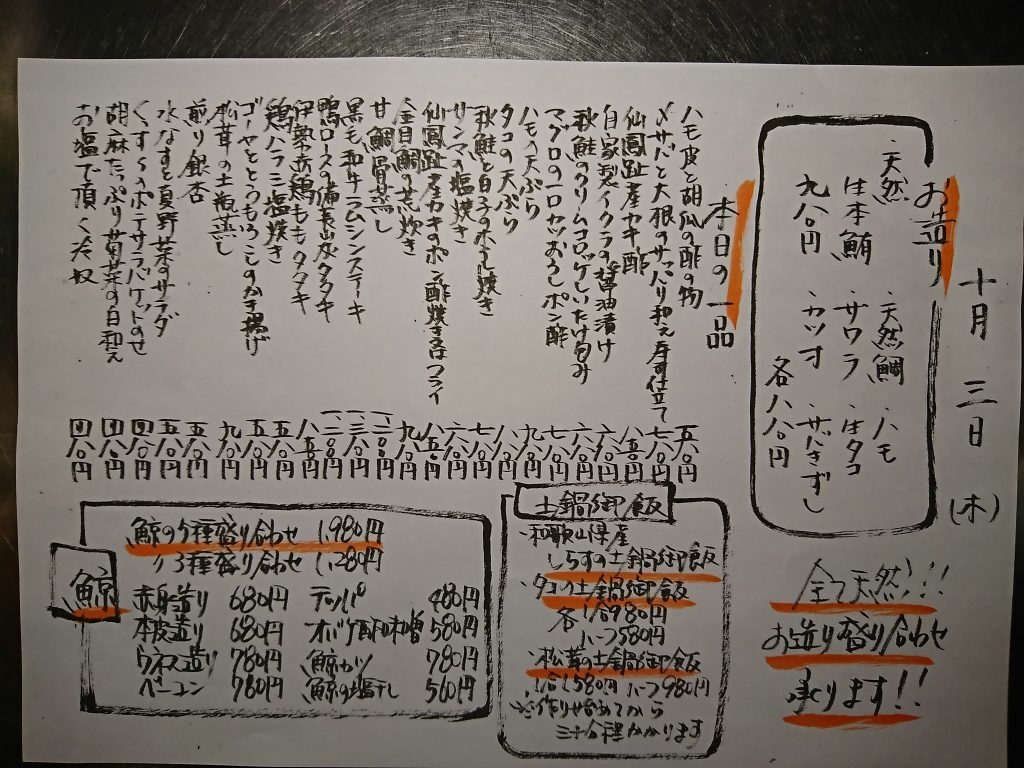 十月 三日 (木)
お造り
・天然 ・天然鯛 ・ハモ
生本鮪 ・サワラ ・生タコ
九八〇円 ・カツオ ・きずし
各八八〇円
全て天然!!
お造り盛り合わせ
承ります!!
本日の一品
ハモ皮と胡瓜の酢の物 五八〇円
〆サバと大根のサッパリ和え寿司仕立て 七八〇円
仙鳳趾産カキ酢 八五〇円
自家製イクラの醤油漬け 六八〇円
秋鮭のクリームコロッケしいたけ包み
マグロの一口カツおろしポン酢 七八〇円
ハモの天ぷら 九八〇円
タコの天ぷら 八八〇円
秋鮭と白子のホイル焼き 七八〇円
サンマの塩焼き 六八〇円
仙鳳趾産カキのポン酢焼き又はフライ 八五〇円
金目鯛の煮炊き 九八〇円
甘鯛骨蒸し
黒毛和牛ラムシンステーキ
鴨ロースの備長炭タタキ
伊勢赤鶏ももタタキ 八五〇円
鶏ハラミ塩焼き 五八〇円
ゴーヤととうもろこしのかき揚げ 五八〇円
松茸の土瓶蒸し 九八〇円
煎り銀杏 五八〇円
水なすと真野菜のサラダ 五八〇円
くすくすのポテサラバケットのせ 四八〇円
胡麻たっぷり菊菜の白和え 四八〇円
お塩で頂く冷奴 四八〇円
土鍋御飯
・和歌山県産
しらすの土鍋御飯
・タコの土鍋御飯
各 1合780円
ハーフ580円
・松茸の土鍋御飯
1合1,580円 ハーフ980円
※作り始めてから
三十分程かかります
鯨
鯨の5種盛り合わせ 1,980円
〃 3種盛り合わせ 1,280円
赤身造り 680円 テッパ 480円
本皮造り 680円 オバケ酢味噌 580円
ウネス造り 780円 鯨カツ 780円
ベーコン 780円 鯨の塩干し 560円